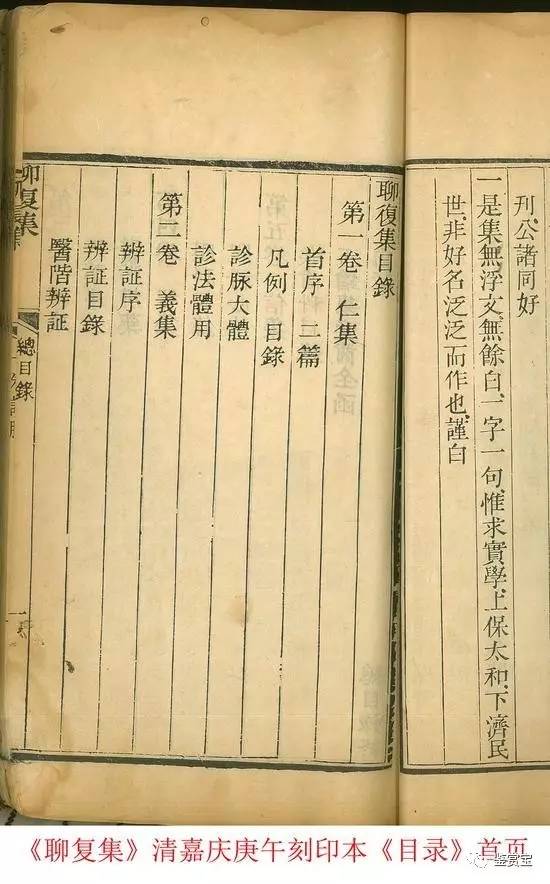 刋、公諸同好
一是集無浮文、無餘白、一字一句、惟求實學、上保太和、下濟民
世、非好名泛泛而作也、謹白
聊復集目錄
第一卷 仁集
首序 二篇
凡例 目錄
診脉大體
診法體用
第二卷 義集
辨証序
辨証目錄
醫階辨証
聊复集
總目錄
一
《聊复集》清嘉庆庚午刻印本《目录》首页
鉴赏宝